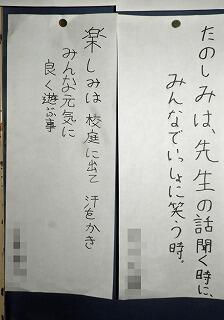 たのしみは先生の話聞く時に、
みんなでいっしょに笑う時。
楽しみは 校庭に出て 汗をかき
みんな元気に
良く遊ぶ事